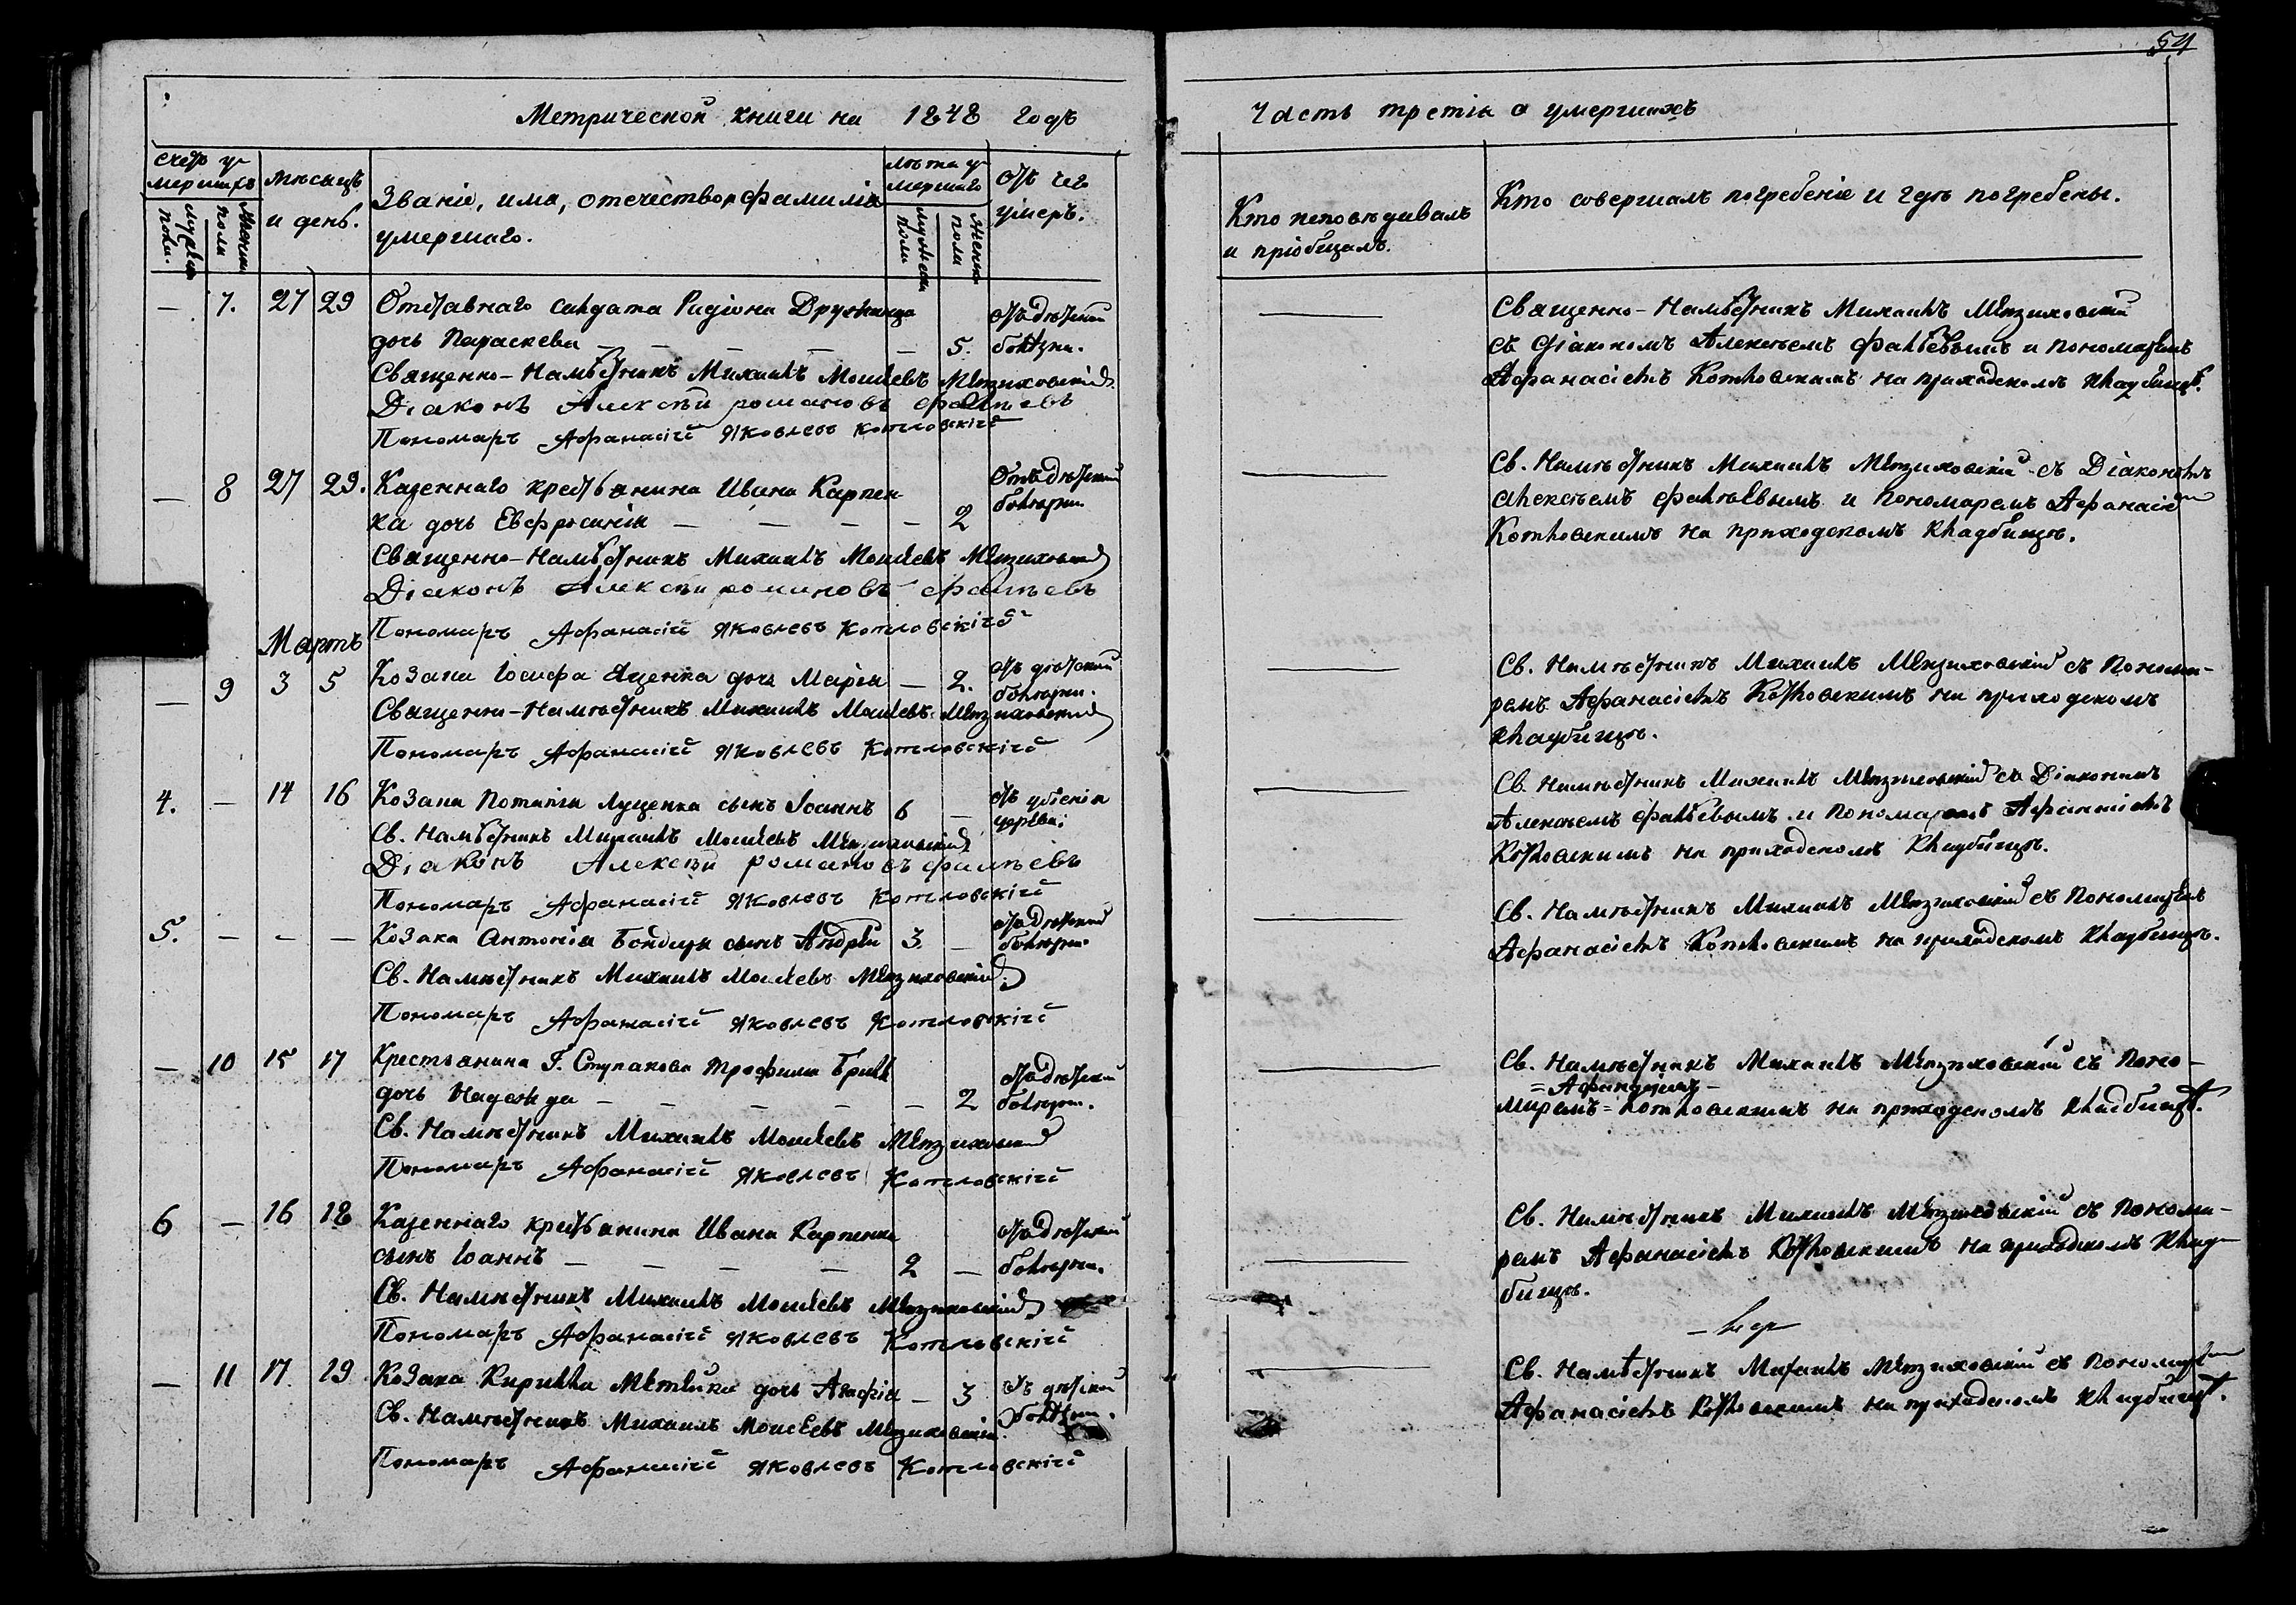 54
Метрической книги на 1848 годъ
Часть третія о умершихъ
Счетъ у-
мершихъ
Мужеска
пола.
Женска
пола
Мѣсяцъ
и день.
Званіе, имя, отечество и фамилія
умершаго.
Лѣта у-
мершаго
Мужеска
пола
Женска
пола
Отъ чего
умеръ.
Кто исповѣдывалъ
и пріобщалъ.
Кто совершалъ погребеніе и гдѣ погребены.
— 7. 27 29 Отставнаго солдата Родіона
дочь Параскева — — — — — 5.
отъ дѣтской
болѣзни.
Священно-Намѣстникъ Михаилъ Моисеевъ
Діаконъ Алексѣй Романовъ Фалѣевъ
Пономарь Афанасій Яковлевъ Котловскій
Священно-Намѣстникъ Михаилъ
съ Діакономъ Алексѣемъ Фалѣевымъ и Пономаремъ
Афанасіемъ Котловскимъ на приходскомъ кладбищѣ.
— 8 27 29. Казеннаго крестьянина Ивана Карпен-
ка дочь Евфросинія — — — — 2
Отъ дѣтской
болѣзни
Священно-Намѣстникъ Михаилъ Моисеевъ
Діаконъ Алексѣй Романовъ Фалѣевъ
Пономарь Афанасій Яковлевъ Котловскій
Св. Намѣстникъ Михаилъ съ Діакономъ
Алексѣемъ Фалѣевымъ и Пономаремъ Афанасіемъ
Котловскимъ на приходскомъ кладбищѣ.
Мартъ
— 9 3 5 Козака Іосифа Яценка дочь Марія — 2.
отъ дѣтской
болѣзни.
Священно-Намѣстникъ Михаилъ Моисеевъ
Пономарь Афанасій Яковлевъ Котловскій
Св. Намѣстникъ Михаилъ съ Понома-
ремъ Афанасіемъ Котловскимъ на приходскомъ
кладбищѣ.
4. — 14 16 Козака Потапія Луценка сынъ Іоаннъ 6 —
Св. Намѣстникъ Михаилъ Моисеевъ
Діаконъ Алексѣй Романовъ Фалѣевъ
Пономарь Афанасій Яковлевъ Котловскій
Св. Намѣстникъ Михаилъ съ Діакономъ
Алексѣемъ Фалѣевымъ и Пономаремъ Афанасіемъ
Котловскимъ на приходскомъ кладбищѣ.
5. — — — Козака Антонія сынъ Андрей 3. —
отъ дѣтской
болѣзни
Св. Намѣстникъ Михаилъ Моисеевъ
Пономарь Афанасій Яковлевъ Котловскій
Св. Намѣстникъ Михаилъ съ Пономаремъ
Афанасіемъ Котловскимъ на приходскомъ кладбищѣ.
— 10 15 17 Крестьянина Г. Ступакова Трофима
дочь Надежда — — — — — 2
отъ дѣтской
болѣзни.
Св. Намѣстникъ Михаилъ Моисеевъ
Пономарь Афанасій Яковлевъ Котловскій
Св. Намѣстникъ Михаилъ съ Поно-
=Афанасіемъ=
маремъ=Котловскимъ на приходскомъ кладбищѣ.
6 — 16 18 Казеннаго крестьянина Ивана Карпенка
сынъ Іоаннъ — — — — 2 —
отъ дѣтской
болѣзни.
Св. Намѣстникъ Михаилъ Моисеевъ
Пономарь Афанасій Яковлевъ Котловскій
Св. Намѣстникъ Михаилъ съ Понома-
ремъ Афанасіемъ Котловскимъ на приходскомъ клад-
бищѣ.
— 11 17. 19 Козака Кирилла дочь Агафія — 3
отъ дѣтской
болѣзни.
Св. Намѣстникъ Михаилъ Моисеевъ
Пономарь Афанасій Яковлевъ Котловскій
Св. Намѣстникъ Михаилъ съ Пономаремъ
Афанасіемъ Котловскимъ на приходскомъ кладбищѣ.